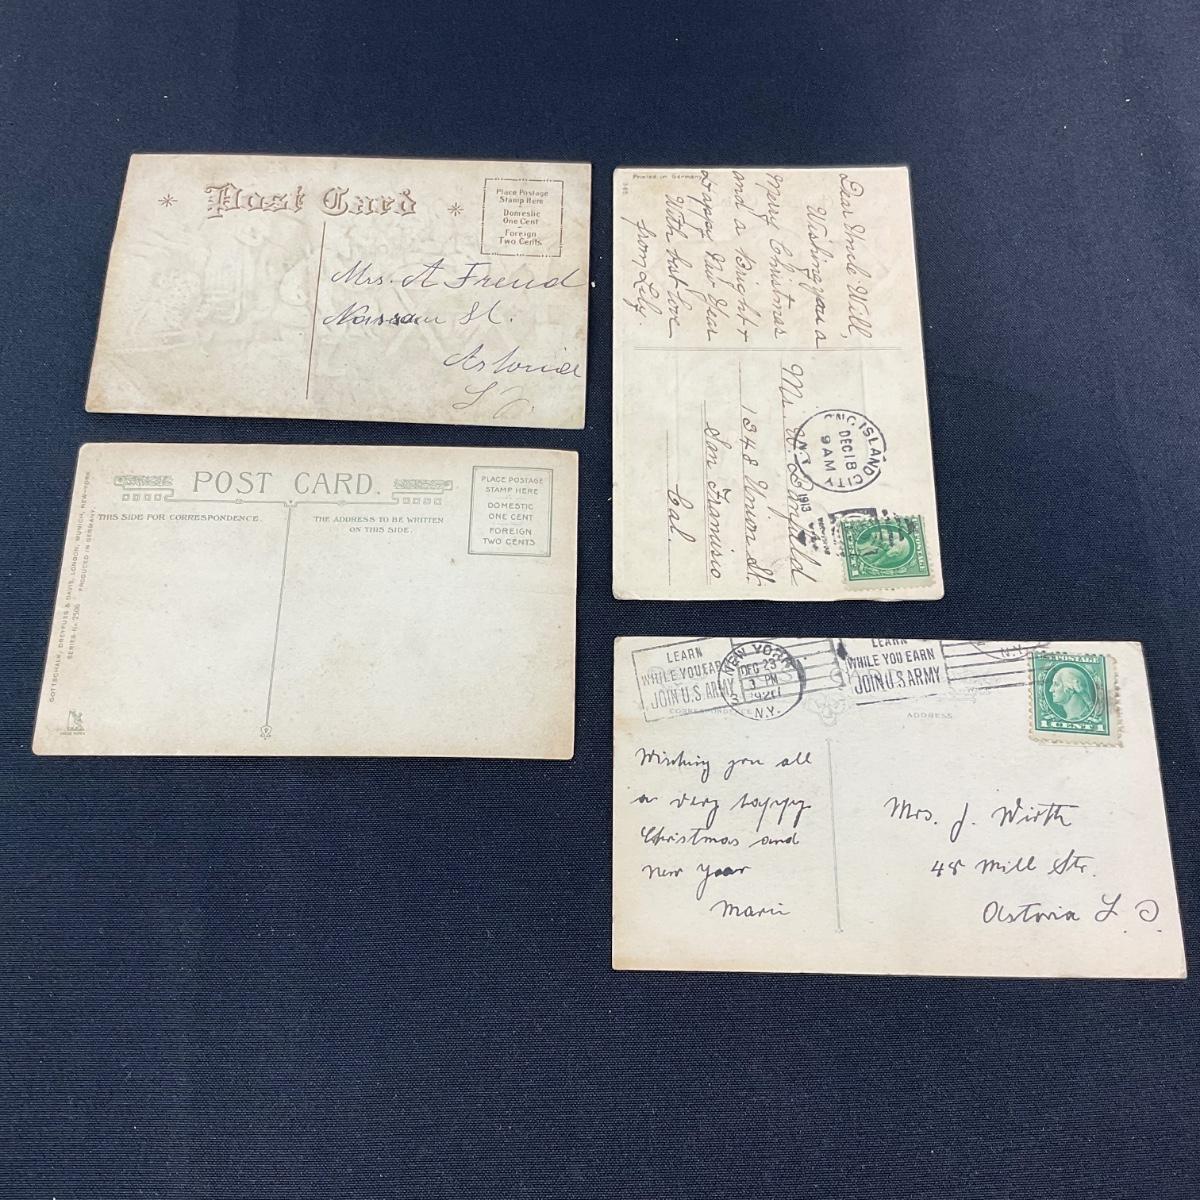 Post Card
Place Postage
Stamp Here
Domestic
One Cent
Foreign
Two Cents
Mrs. A Freud
Nassau St.
Astoria
L
Printed in Germany
Dear Uncle Will,
Wishing you a
Merry Christmas
and a Bright &
Happy New Year
With best love
from Lily.
Mr. W.
1348 Union St.
San Francisco
Cal.
LONG ISLAND CITY
N.Y.
DEC 18
9 AM
1913
POSTAGE
1 CENT 1
POST CARD.
THIS SIDE FOR CORRESPONDENCE.
THE ADDRESS TO BE WRITTEN
ON THIS SIDE.
PLACE POSTAGE
STAMP HERE
DOMESTIC
ONE CENT
FOREIGN
TWO CENTS
GOTTSCHALK, DREYFUSS & DAVIS, LONDON, MUNICH, NEW-YORK.
SERIES No 2506 PRODUCED IN GERMANY.
LEARN
WHILE YOU EARN
JOIN U.S. ARMY
NEW YORK
DEC 23
3 PM
1920
N.Y.
LEARN
WHILE YOU EARN
JOIN U.S ARMY
N.Y.
POSTAGE
1 CENT 1
CORRESPONDENCE
ADDRESS
Wishing you all
a very happy
Christmas and
New Year
Marie
Mrs. J. Wirth
48 Mill Str.
Astoria L. I.